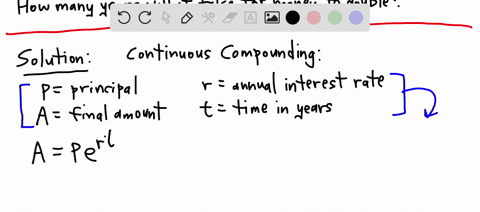 How many
Solution: Continuous Compounding:
P = principal r = annual interest rate
A = final amount t = time in years
A = Pe^rt